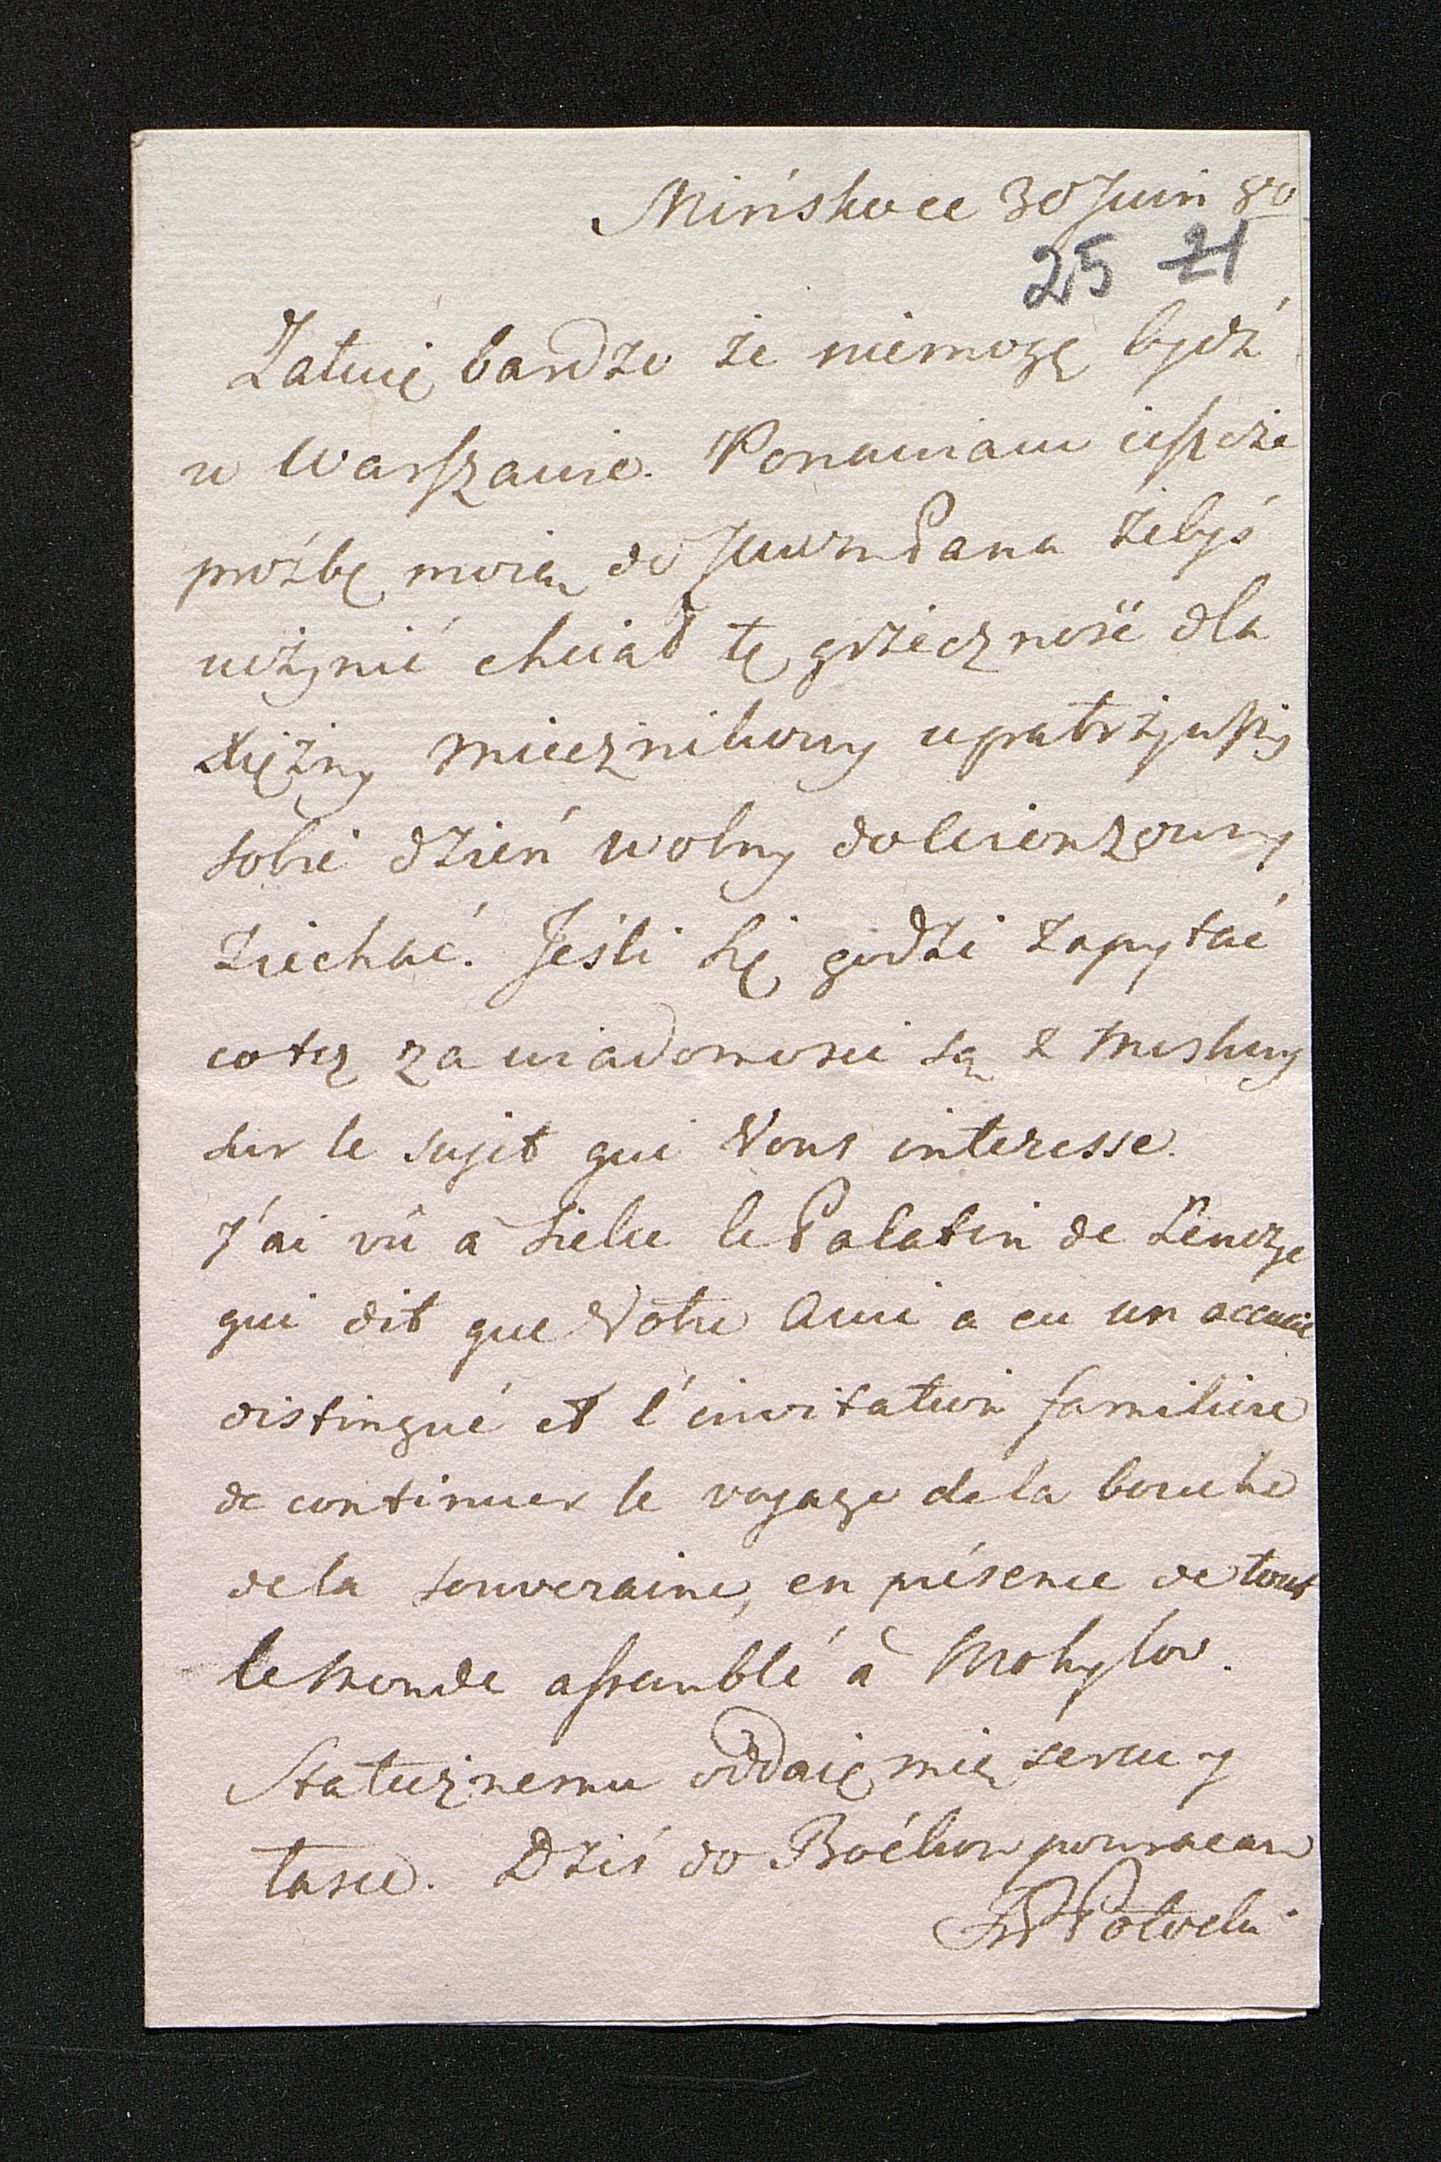 Mińskoce 30 Juin 80
25 21
Załuię bardzo że niemogę bydź
w Warszawie. Ponawiam ieszcze
prośbę moią do JWWPana żebyś
uczynić chciał tę grzeczność dla
Xiężny Miecznikowy upatrzywszy
sobie dzień wolny do
ziechać. Jeśli się godzi zapytać
cotesz za wiadomosci są z Moskwy
sur le sujet qui Vous interesse.
J'ai vû a Sielce le Palatin de Lenczyc
qui dit que Votre Ami a eu un accueil
distingué et l'invitation familiere
de continuer le voyage dela bouche
dela souveraine, en présence de tout
le monde assemblé à Mohylow.
Statecznemu oddaię mię sercu y
łasce. Dziś do Boćkow powracam
Potocki